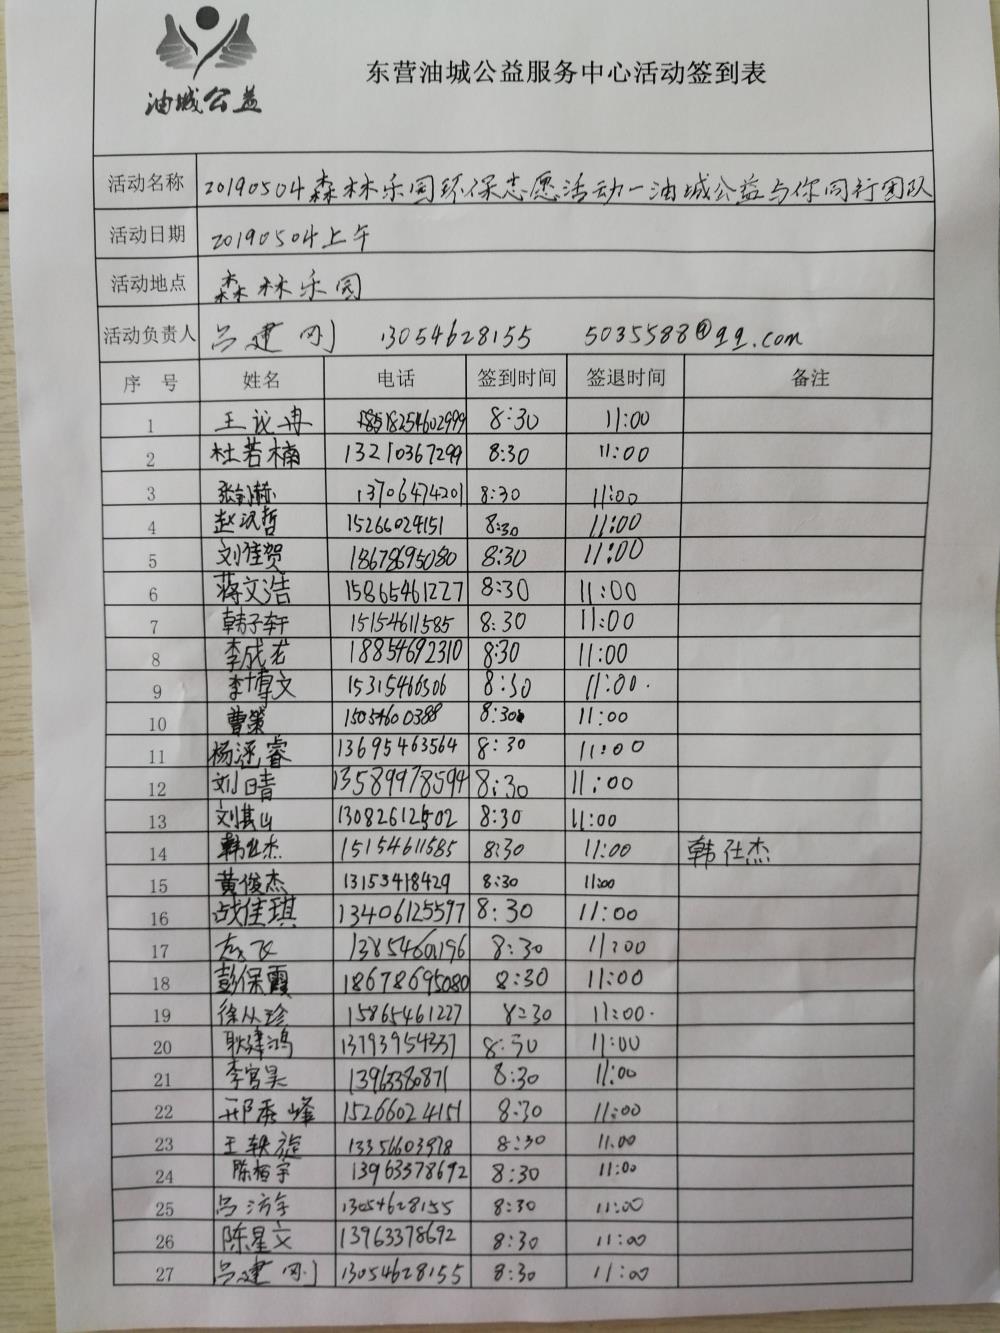 油城公益
东营油城公益服务中心活动签到表
活动名称 20190504森林乐园环保志愿活动一油城公益与你同行团队
活动日期 20190504上午
活动地点 森林乐园
活动负责人 吕建刚 13054628155 5035588@qq.com
序号 姓名 电话 签到时间 签退时间 备注
1 王议冉 8:30 11:00
2 杜若楠 13210367299 8:30 11:00
3 13706474201 8:30 11:00
4 赵汉哲 15266024151 8:30 11:00
5 刘佳贺 18678695080 8:30 11:00
6 蒋文浩 15865461227 8:30 11:00
7 韩子轩 15154611585 8:30 11:00
8 李成龙 18854692310 8:30 11:00
9 李博文 15315466506 8:30 11:00.
10 曹策 15054600388 8:30 11:00
11 杨涵睿 13695463564 8:30 11:00
12 刘日青 13589978594 8:30 11:00
13 刘其山 13082612502 8:30 11:00
14 韩仕杰 15154611585 8:30 11:00 韩仕杰
15 黄俊杰 13153418429 8:30 11:00
16 战佳琪 13406125597 8:30 11:00
17 赵飞 13854601196 8:30 11:00
18 彭保霞 18678695080 8:30 11:00
19 徐从珍 15865461227 8:30 11:00.
20 耿建鸿 13793954337 8:30 11:00
21 李宫昊 13963380871 8:30 11:00
22 邢秀峰 15266024151 8:30 11:00
23 王轶旋 13356603978 8:30 11:00
24 陈栢宇 13963378692 8:30 11:00
25 吕汸宇 13054628155 8:30 11:00
26 陈星文 13963378692 8:30 11:00
27 吕建刚 13054628155 8:30 11:00